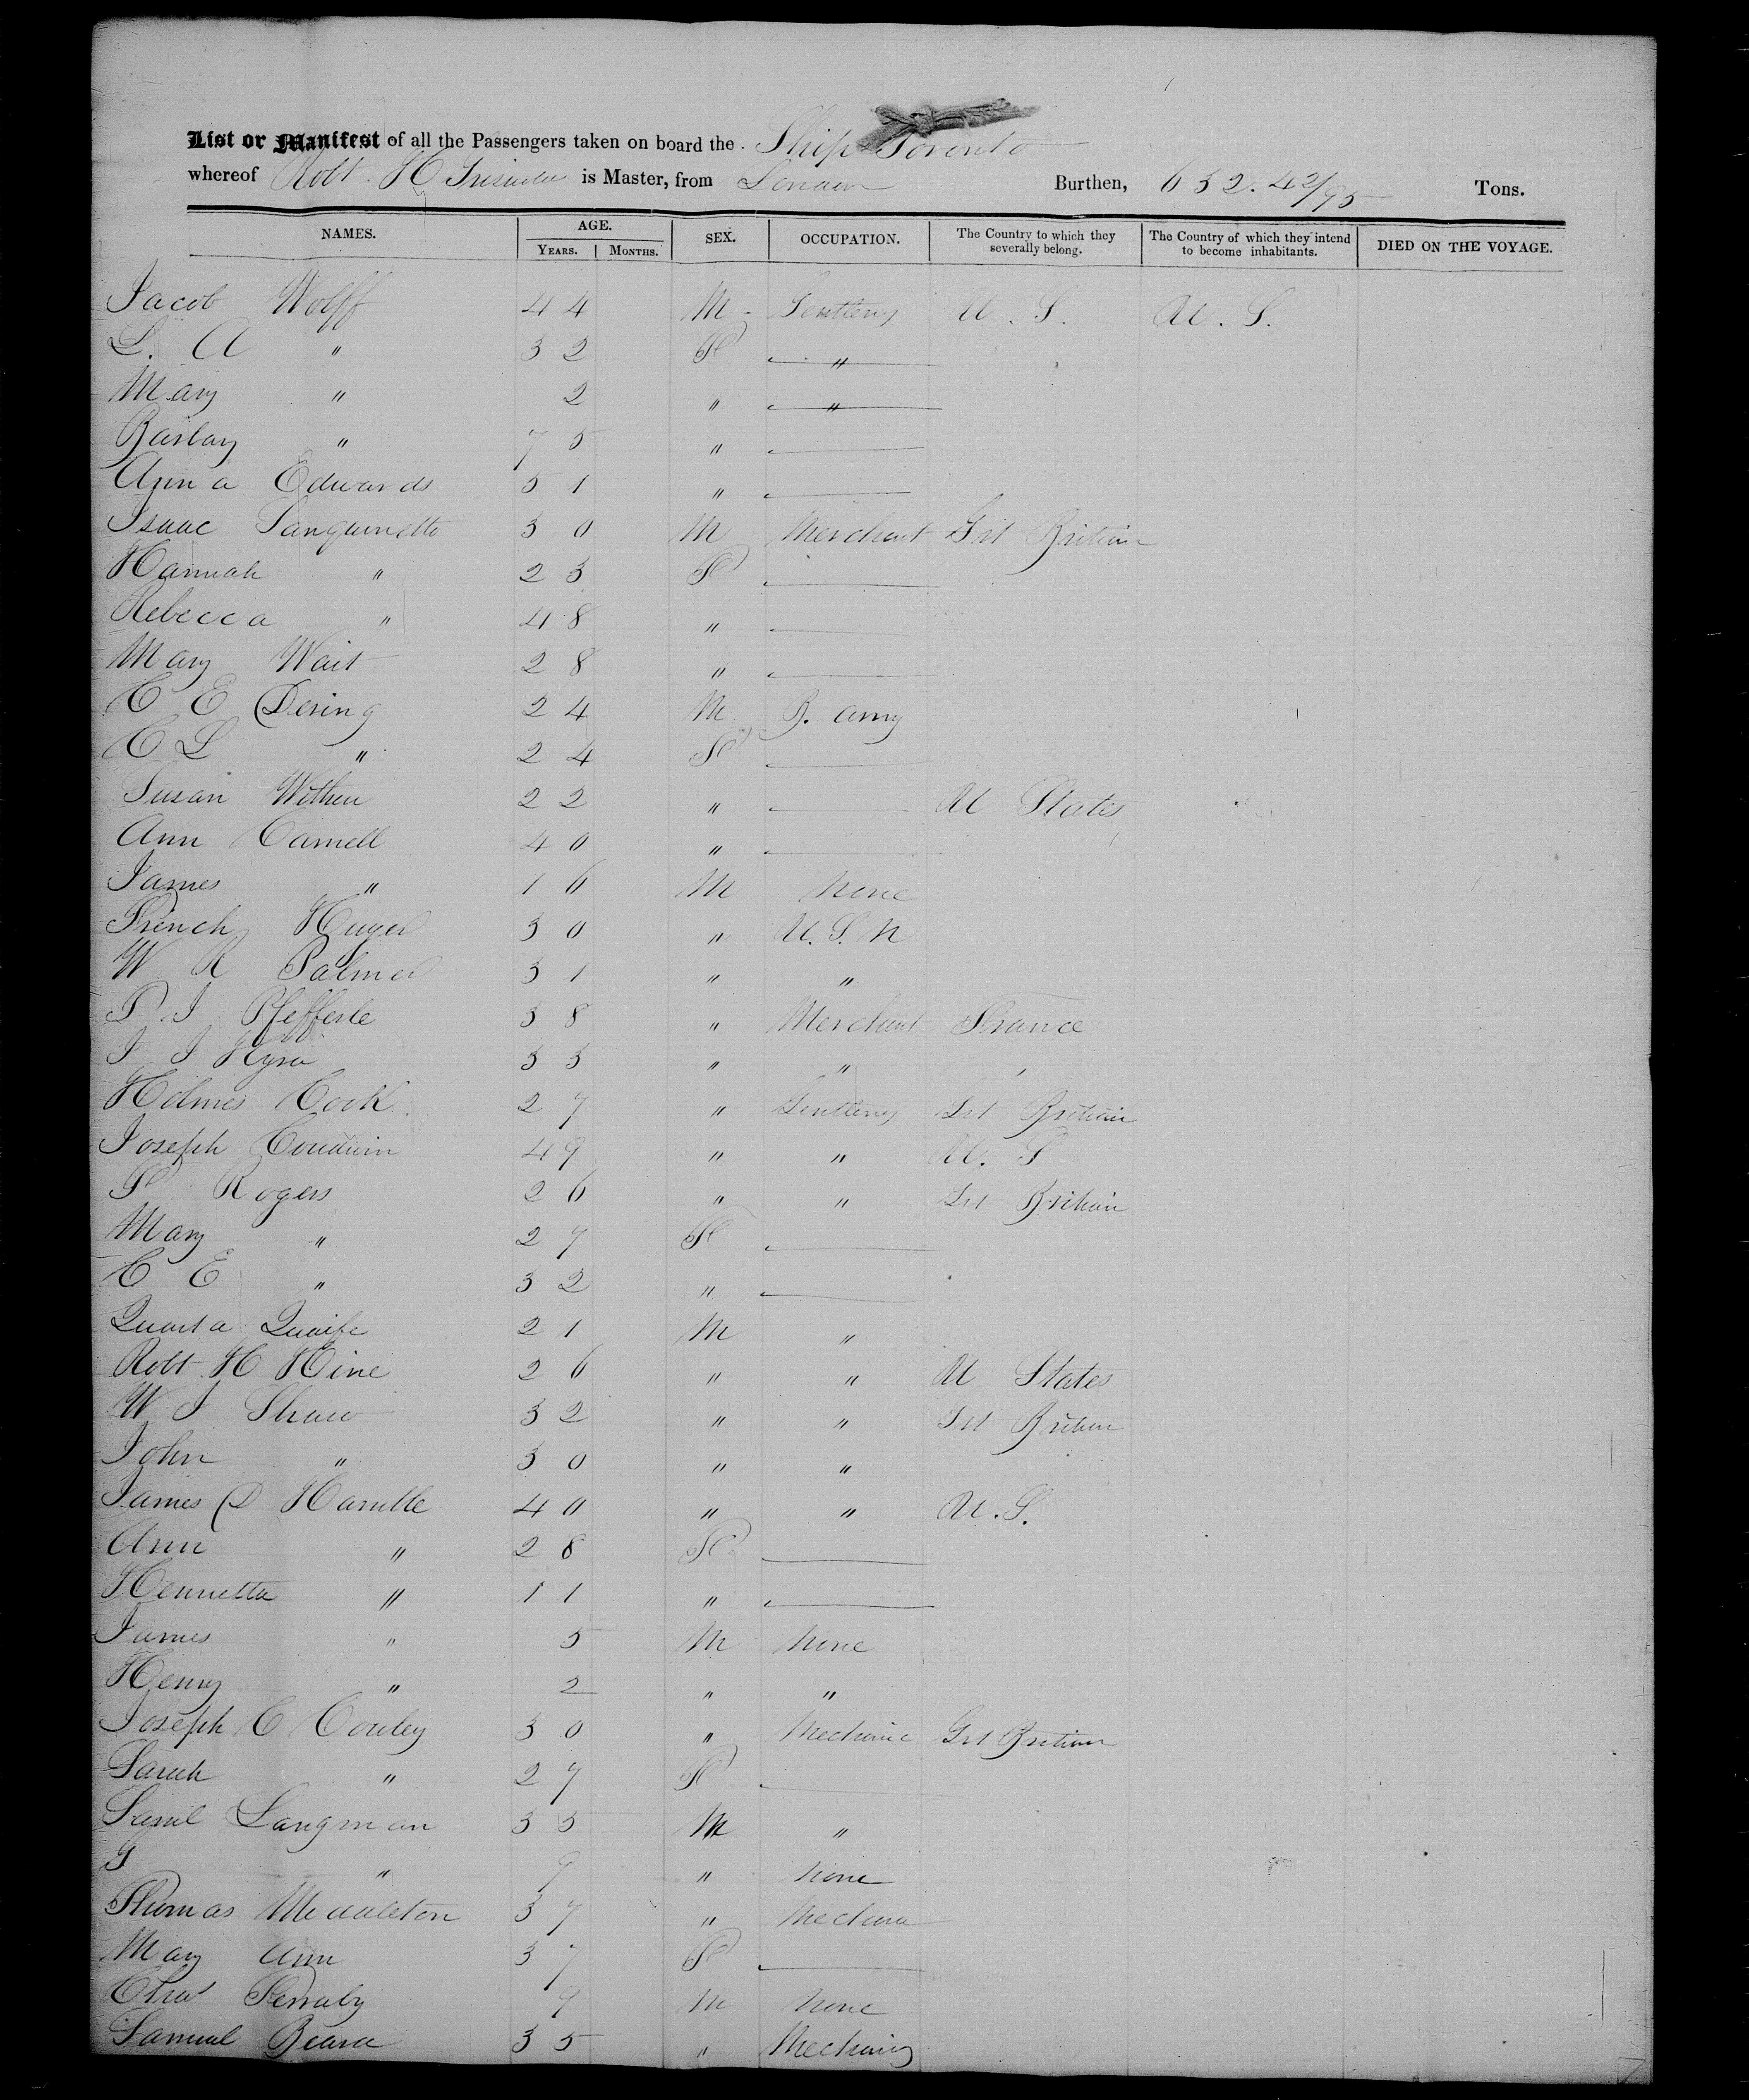 List or Manifest of all the Passengers taken on board the Ship Toronto
whereof Robt. H Griswold is Master, from London Burthen, 632. 42/95 Tons.
NAMES. AGE. YEARS. MONTHS. SEX. OCCUPATION. The Country to which they severally belong. The Country of which they intend to become inhabitants. DIED ON THE VOYAGE.
Jacob Wolff 44 M Gentleng U.S. U.S.
L. A " 32 F "
Mary " 2 " "
Barbay " 75 "
Anna Edwards 51 "
Isaac Sanguinetto 30 M Merchant Grt Britian
Hannah " 23 F
Rebecca " 48 "
Mary Wait 28 "
C E Dering 24 M B. Army
C L " 24 F
Susan Withen 22 " U States
Ann Camell 40 "
James " 16 M None
French Huger 30 " U.S.N
W R Palmer 31 " "
P. J Pfefferle 38 " Merchant France
J J 33 " "
Holmes Cook 27 " Gentleng Grt Britian
Joseph Goudwin 49 " " U.S
F Rogers 26 " " Grt Britian
Mary " 27 F
C E " 32 "
Quaife 21 M "
Robt H Hine 26 " " U States
W J Shaw 32 " " Grt Britian
John " 30 " "
James D Hamble 40 " " U.S.
Ann " 28 F
Henrietta " 11 "
James " 5 M None
Henry " 2 " "
Joseph C Cowley 30 " Mechanic Grt Britian
Sarah " 27 F
Saml Langman 35 M "
G " 9 " none
Thomas Middleton 37 " Mechanic
Mary Ann 37 F
Chas Ferraby 9 M None
Samuel Beard 35 " Mechanic